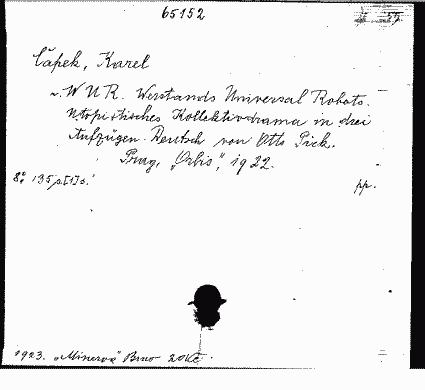 65152
Čapek, Karel
W U R. Werstands Universal Robots.
Utopistisches Kollektivdrama in drei
Aufzügen. Deutsch von Otto Pick.
Prag, „Orbis", 1922.
8° 135 s. [1] s. pp.
1923. „Minerva" Brno 20 Kč.